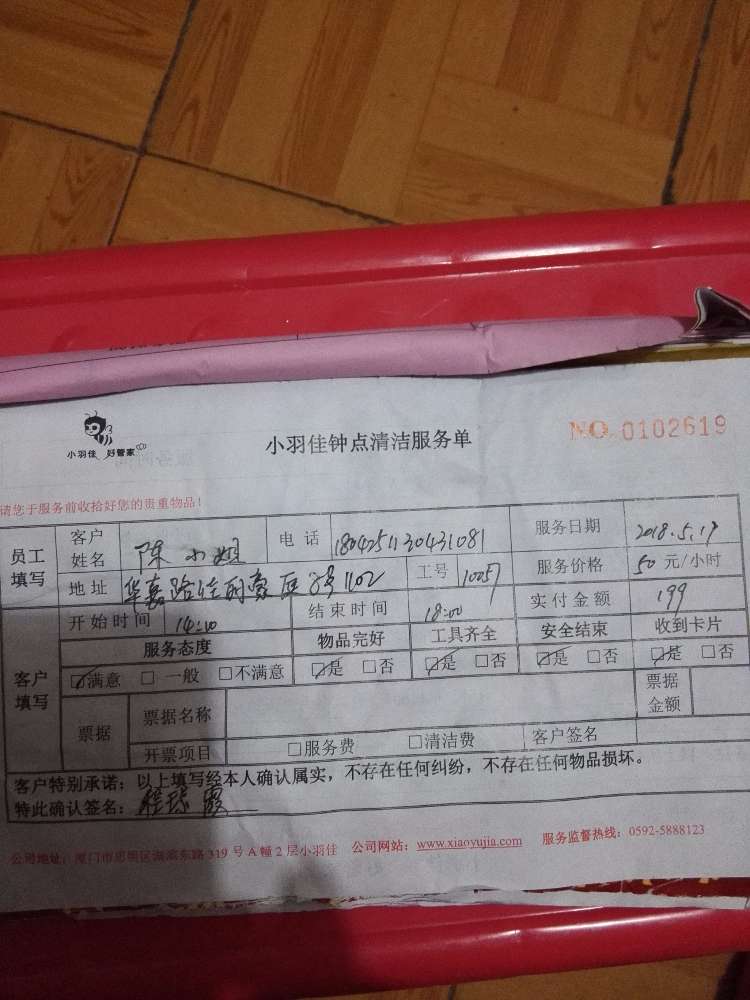 小羽佳 好管家
小羽佳钟点清洁服务单
NO. 0102619
请您于服务前收拾好您的贵重物品!
员工填写 客户姓名 陈小姐 电话 1804251130431081 服务日期 2018.5.19
地址 华嘉路佳丽豪 1102 工号 10057 服务价格 50 元/小时
客户填写 开始时间 14:00 结束时间 18:00 实付金额 199
服务态度 物品完好 工具齐全 安全结束 收到卡片
☑满意 □一般 □不满意 ☑是 □否 ☑是 □否 ☑是 □否 ☑是 □否
票据 票据名称 票据金额
开票项目 □服务费 □清洁费 客户签名
客户特别承诺:以上填写经本人确认属实,不存在任何纠纷,不存在任何物品损坏。
特此确认签名:
公司地址:厦门市思明区湖滨东路319号A幢2层小羽佳 公司网站:www.xiaoyujia.com 服务监督热线:0592-5888123